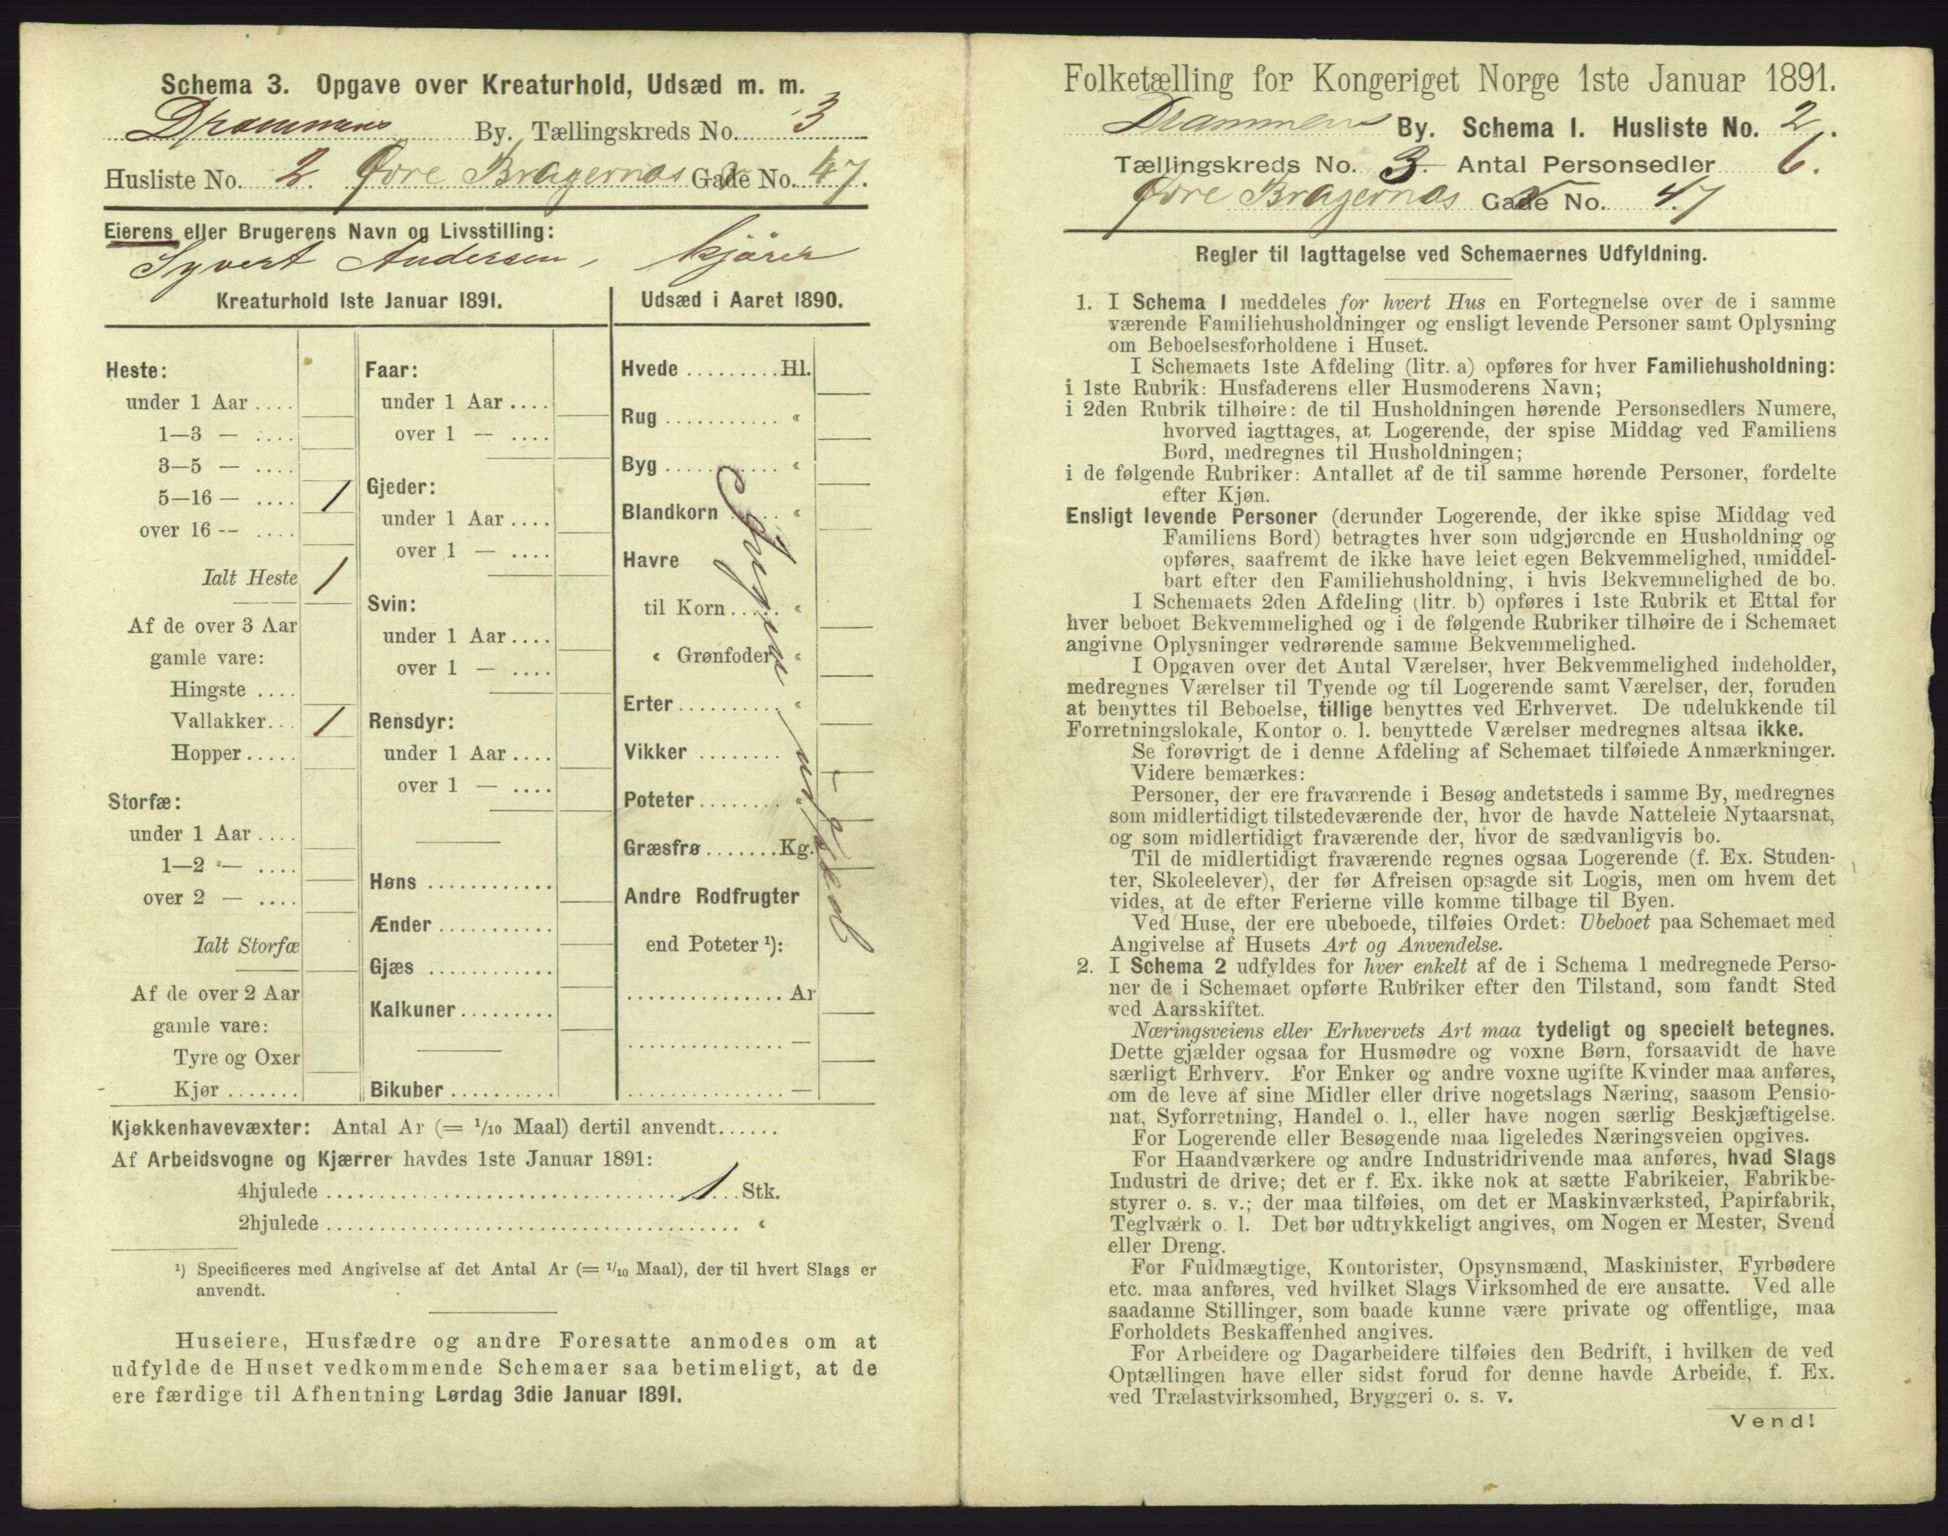 Schema 3. Opgave over Kreaturhold, Udsæd m. m.
Drammens By. Tællingskreds No. 3
Husliste No. 2. Øvre Bragernæs Gade No. 47.
Eierens eller Brugerens Navn og Livsstilling:
Syvert Andersen, kjører
Kreaturhold 1ste Januar 1891.
Heste:
under 1 Aar ....
1—3 — ....
3—5 — ....
5—16 — .... 1
over 16 -- ....
Ialt Heste 1
Af de over 3 Aar
gamle vare:
Hingste ....
Vallakker... 1
Hopper.....
Storfæ:
under 1 Aar ....
1—2 — ....
over 2 — ....
Ialt Storfæ
Af de over 2 Aar
gamle vare:
Tyre og Oxer
Kjør .......
Faar:
under 1 Aar ....
over 1 — ....
Gjeder:
under 1 Aar ....
over 1 — ....
Svin:
under 1 Aar ....
over 1 — ....
Rensdyr:
under 1 Aar ....
over 1 — ....
Høns ............
Ænder ...........
Gjæs ............
Kalkuner.........
Bikuber ..........
Udsæd i Aaret 1890.
Hvede .........Hl.
Rug ........... «
Byg ........... «
Blandkorn ..... «
Havre
til Korn..... «
« Grønfoder «
Erter.......... «
Vikker ........
Poteter........ «
Græsfrø.......Kg.
Andre Rodfrugter
end Poteter ¹):
...............Ar
............... —
............... —
Kjøkkenhavevæxter: Antal Ar (= 1/10 Maal) dertil anvendt......
Af Arbeidsvogne og Kjærrer havdes 1ste Januar 1891:
4hjulede .................................. 1 ...Stk.
2hjulede ...................................... «
¹) Specificeres med Angivelse af det Antal Ar (= 1/10 Maal), der til hvert Slags er
anvendt.
Huseiere, Husfædre og andre Foresatte anmodes om at
udfylde de Huset vedkommende Schemaer saa betimeligt, at de
ere færdige til Afhentning Lørdag 3die Januar 1891.
Folketælling for Kongeriget Norge 1ste Januar 1891.
Drammens By. Schema 1. Husliste No. 2.
Tællingskreds No. 3. Antal Personsedler 6.
Øvre Bragernæs Gade No. 47
Regler til Iagttagelse ved Schemaernes Udfyldning.
1. I Schema 1 meddeles for hvert Hus en Fortegnelse over de i samme
værende Familiehusholdninger og ensligt levende Personer samt Oplysning
om Beboelsesforholdene i Huset.
I Schemaets 1ste Afdeling (litr. a) opføres for hver Familiehusholdning:
i 1ste Rubrik: Husfaderens eller Husmoderens Navn;
i 2den Rubrik tilhøire: de til Husholdningen hørende Personsedlers Numere,
hvorved iagttages, at Logerende, der spise Middag ved Familiens
Bord, medregnes til Husholdningen;
i de følgende Rubriker: Antallet af de til samme hørende Personer, fordelte
efter Kjøn.
Ensligt levende Personer (derunder Logerende, der ikke spise Middag ved
Familiens Bord) betragtes hver som udgjørende en Husholdning og
opføres, saafremt de ikke have leiet egen Bekvemmelighed, umiddel-
bart efter den Familiehusholdning, i hvis Bekvemmelighed de bo.
I Schemaets 2den Afdeling (litr. b) opføres i 1ste Rubrik et Ettal for
hver beboet Bekvemmelighed og i de følgende Rubriker tilhøire de i Schemaet
angivne Oplysninger vedrørende samme Bekvemmelighed.
I Opgaven over det Antal Værelser, hver Bekvemmelighed indeholder,
medregnes Værelser til Tyende og til Logerende samt Værelser, der, foruden
at benyttes til Beboelse, tillige benyttes ved Erhvervet. De udelukkende til
Forretningslokale, Kontor o. l. benyttede Værelser medregnes altsaa ikke.
Se forøvrigt de i denne Afdeling af Schemaet tilføiede Anmærkninger.
Videre bemærkes:
Personer, der ere fraværende i Besøg andetsteds i samme By, medregnes
som midlertidigt tilstedeværende der, hvor de havde Natteleie Nytaarsnat,
og som midlertidigt fraværende der, hvor de sædvanligvis bo.
Til de midlertidigt fraværende regnes ogsaa Logerende (f. Ex. Studen-
ter, Skoleelever), der før Afreisen opsagde sit Logis, men om hvem det
vides, at de efter Ferierne ville komme tilbage til Byen.
Ved Huse, der ere ubeboede, tilføies Ordet: Ubeboet paa Schemaet med
Angivelse af Husets Art og Anvendelse.
2. I Schema 2 udfyldes for hver enkelt af de i Schema 1 medregnede Perso-
ner de i Schemaet opførte Rubriker efter den Tilstand, som fandt Sted
ved Aarsskiftet.
Næringsveiens eller Erhvervets Art maa tydeligt og specielt betegnes.
Dette gjælder ogsaa for Husmødre og voxne Børn, forsaavidt de have
særligt Erhverv. For Enker og andre voxne ugifte Kvinder maa anføres,
om de leve af sine Midler eller drive nogetslags Næring, saasom Pensio-
nat, Syforretning, Handel o. l., eller have nogen særlig Beskjæftigelse.
For Logerende eller Besøgende maa ligeledes Næringsveien opgives.
For Haandværkere og andre Industridrivende maa anføres, hvad Slags
Industri de drive; det er f. Ex. ikke nok at sætte Fabrikeier, Fabrikbe-
styrer o. s. v.; der maa tilføies, om det er Maskinværksted, Papirfabrik,
Teglværk o. l. Det bør udtrykkeligt angives, om Nogen er Mester, Svend
eller Dreng.
For Fuldmægtige, Kontorister, Opsynsmænd, Maskinister, Fyrbødere
etc. maa anføres, ved hvilket Slags Virksomhed de ere ansatte. Ved alle
saadanne Stillinger, som baade kunne være private og offentlige, maa
Forholdets Beskaffenhed angives.
For Arbeidere og Dagarbeidere tilføies den Bedrift, i hvilken de ved
Optællingen have eller sidst forud for denne havde Arbeide, f. Ex.
ved Trælastvirksomhed, Bryggeri o. s. v.
Vend!